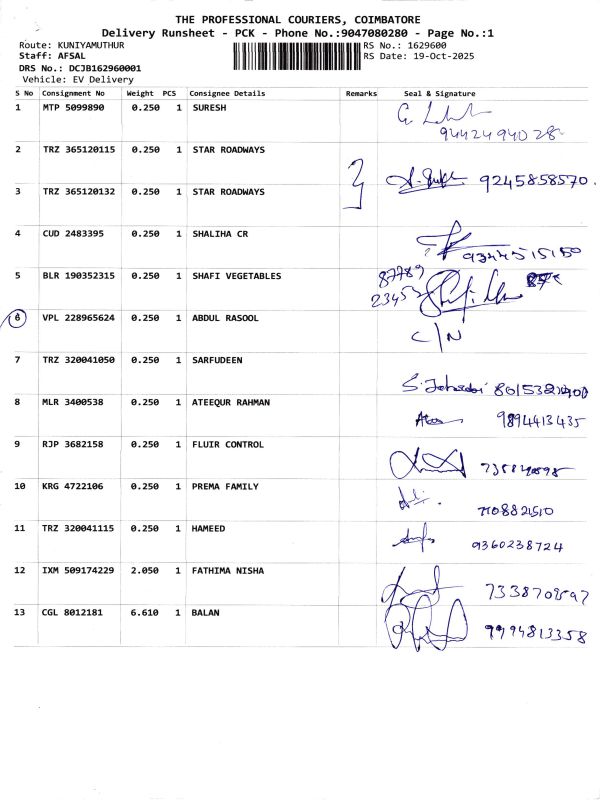 THE PROFESSIONAL COURIERS, COIMBATORE
Delivery Runsheet - PCK - Phone No.:9047080280 - Page No.:1
Route: KUNIYAMUTHUR
RS No.: 1629600
Staff: AFSAL
RS Date: 19-Oct-2025
DRS No.: DCJB162960001
Vehicle: EV Delivery
S No Consignment No Weight PCS Consignee Details Remarks Seal & Signature
1 MTP 5099890 0.250 1 SURESH
2 TRZ 365120115 0.250 1 STAR ROADWAYS
3 TRZ 365120132 0.250 1 STAR ROADWAYS 9245858570.
4 CUD 2483395 0.250 1 SHALIHA CR 9344515150
5 BLR 190352315 0.250 1 SHAFI VEGETABLES 87789
23453
6 VPL 228965624 0.250 1 ABDUL RASOOL C/N
7 TRZ 320041050 0.250 1 SARFUDEEN
8 MLR 3400538 0.250 1 ATEEQUR RAHMAN 9894413435
9 RJP 3682158 0.250 1 FLUIR CONTROL
10 KRG 4722106 0.250 1 PREMA FAMILY
11 TRZ 320041115 0.250 1 HAMEED 9360238724
12 IXM 509174229 2.050 1 FATHIMA NISHA
13 CGL 8012181 6.610 1 BALAN 9994813358